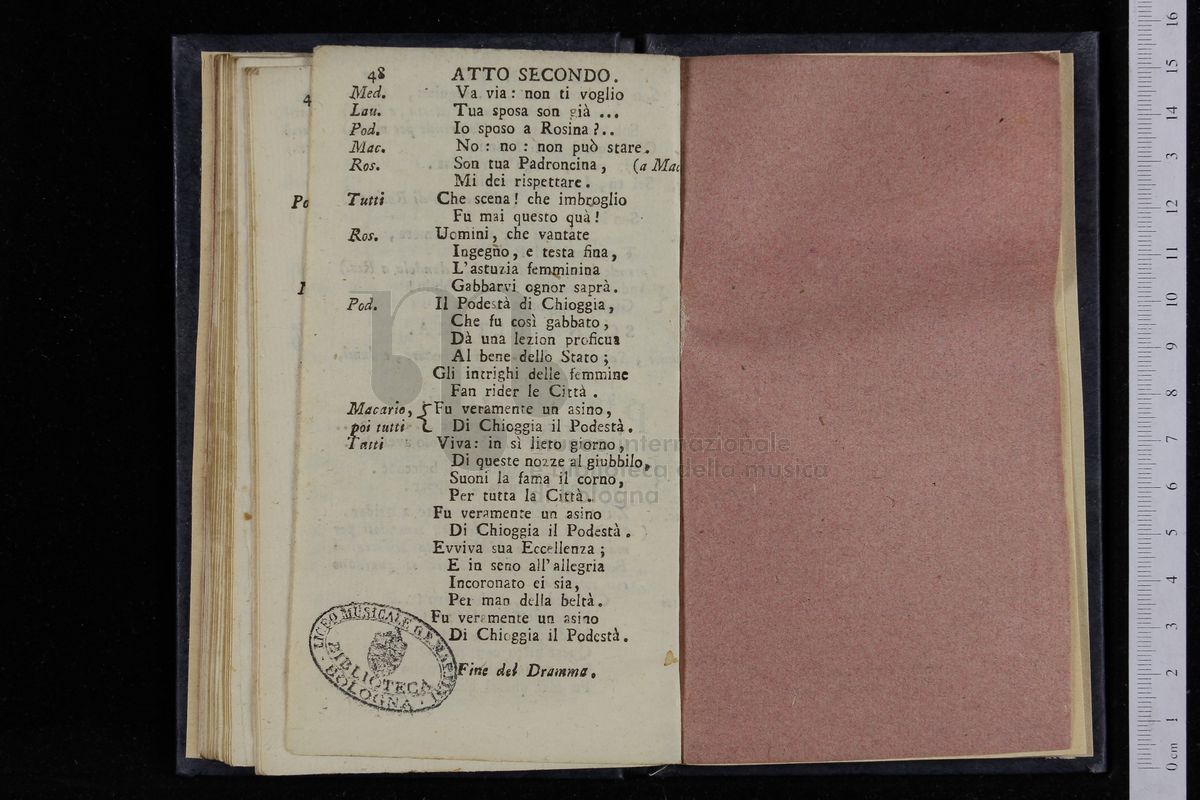 48 ATTO SECONDO.
Med. Va via: non ti voglio
Lau. Tua sposa son già ...
Pod. Io sposo a Rosina?..
Mac. No: no: non può stare.
Ros. Son tua Padroncina, (a Mac
Mi dei rispettare.
Tutti Che scena! che imbroglio
Fu mai questo quà!
Ros. Uomini, che vantate
Ingegno, e testa fina,
L'astuzia femminina
Gabbarvi ognor saprà.
Pod. Il Podestà di Chioggia,
Che fu così gabbato,
Dà una lezion proficua
Al bene dello Stato;
Gli intrighi delle femmine
Fan rider le Città.
Macario, Fu veramente un asino,
poi tutti Di Chioggia il Podestà.
Tutti Viva: in sì lieto giorno,
Di queste nozze al giubbilo,
Suoni la fama il corno,
Per tutta la Città.
Fu veramente un asino
Di Chioggia il Podestà.
Evviva sua Eccellenza;
E in seno all'allegria
Incoronato ei sia,
Per man della beltà.
Fu veramente un asino
Di Chioggia il Podestà.
Fine del Dramma.
LICEO MUSICALE G.B. MARTINI
BIBLIOTECA
BOLOGNA
museo internazionale
e biblioteca della musica
di bologna
4
Po
0 cm 1 2 3 4 5 6 7 8 9 10 11 12 13 14 15 16